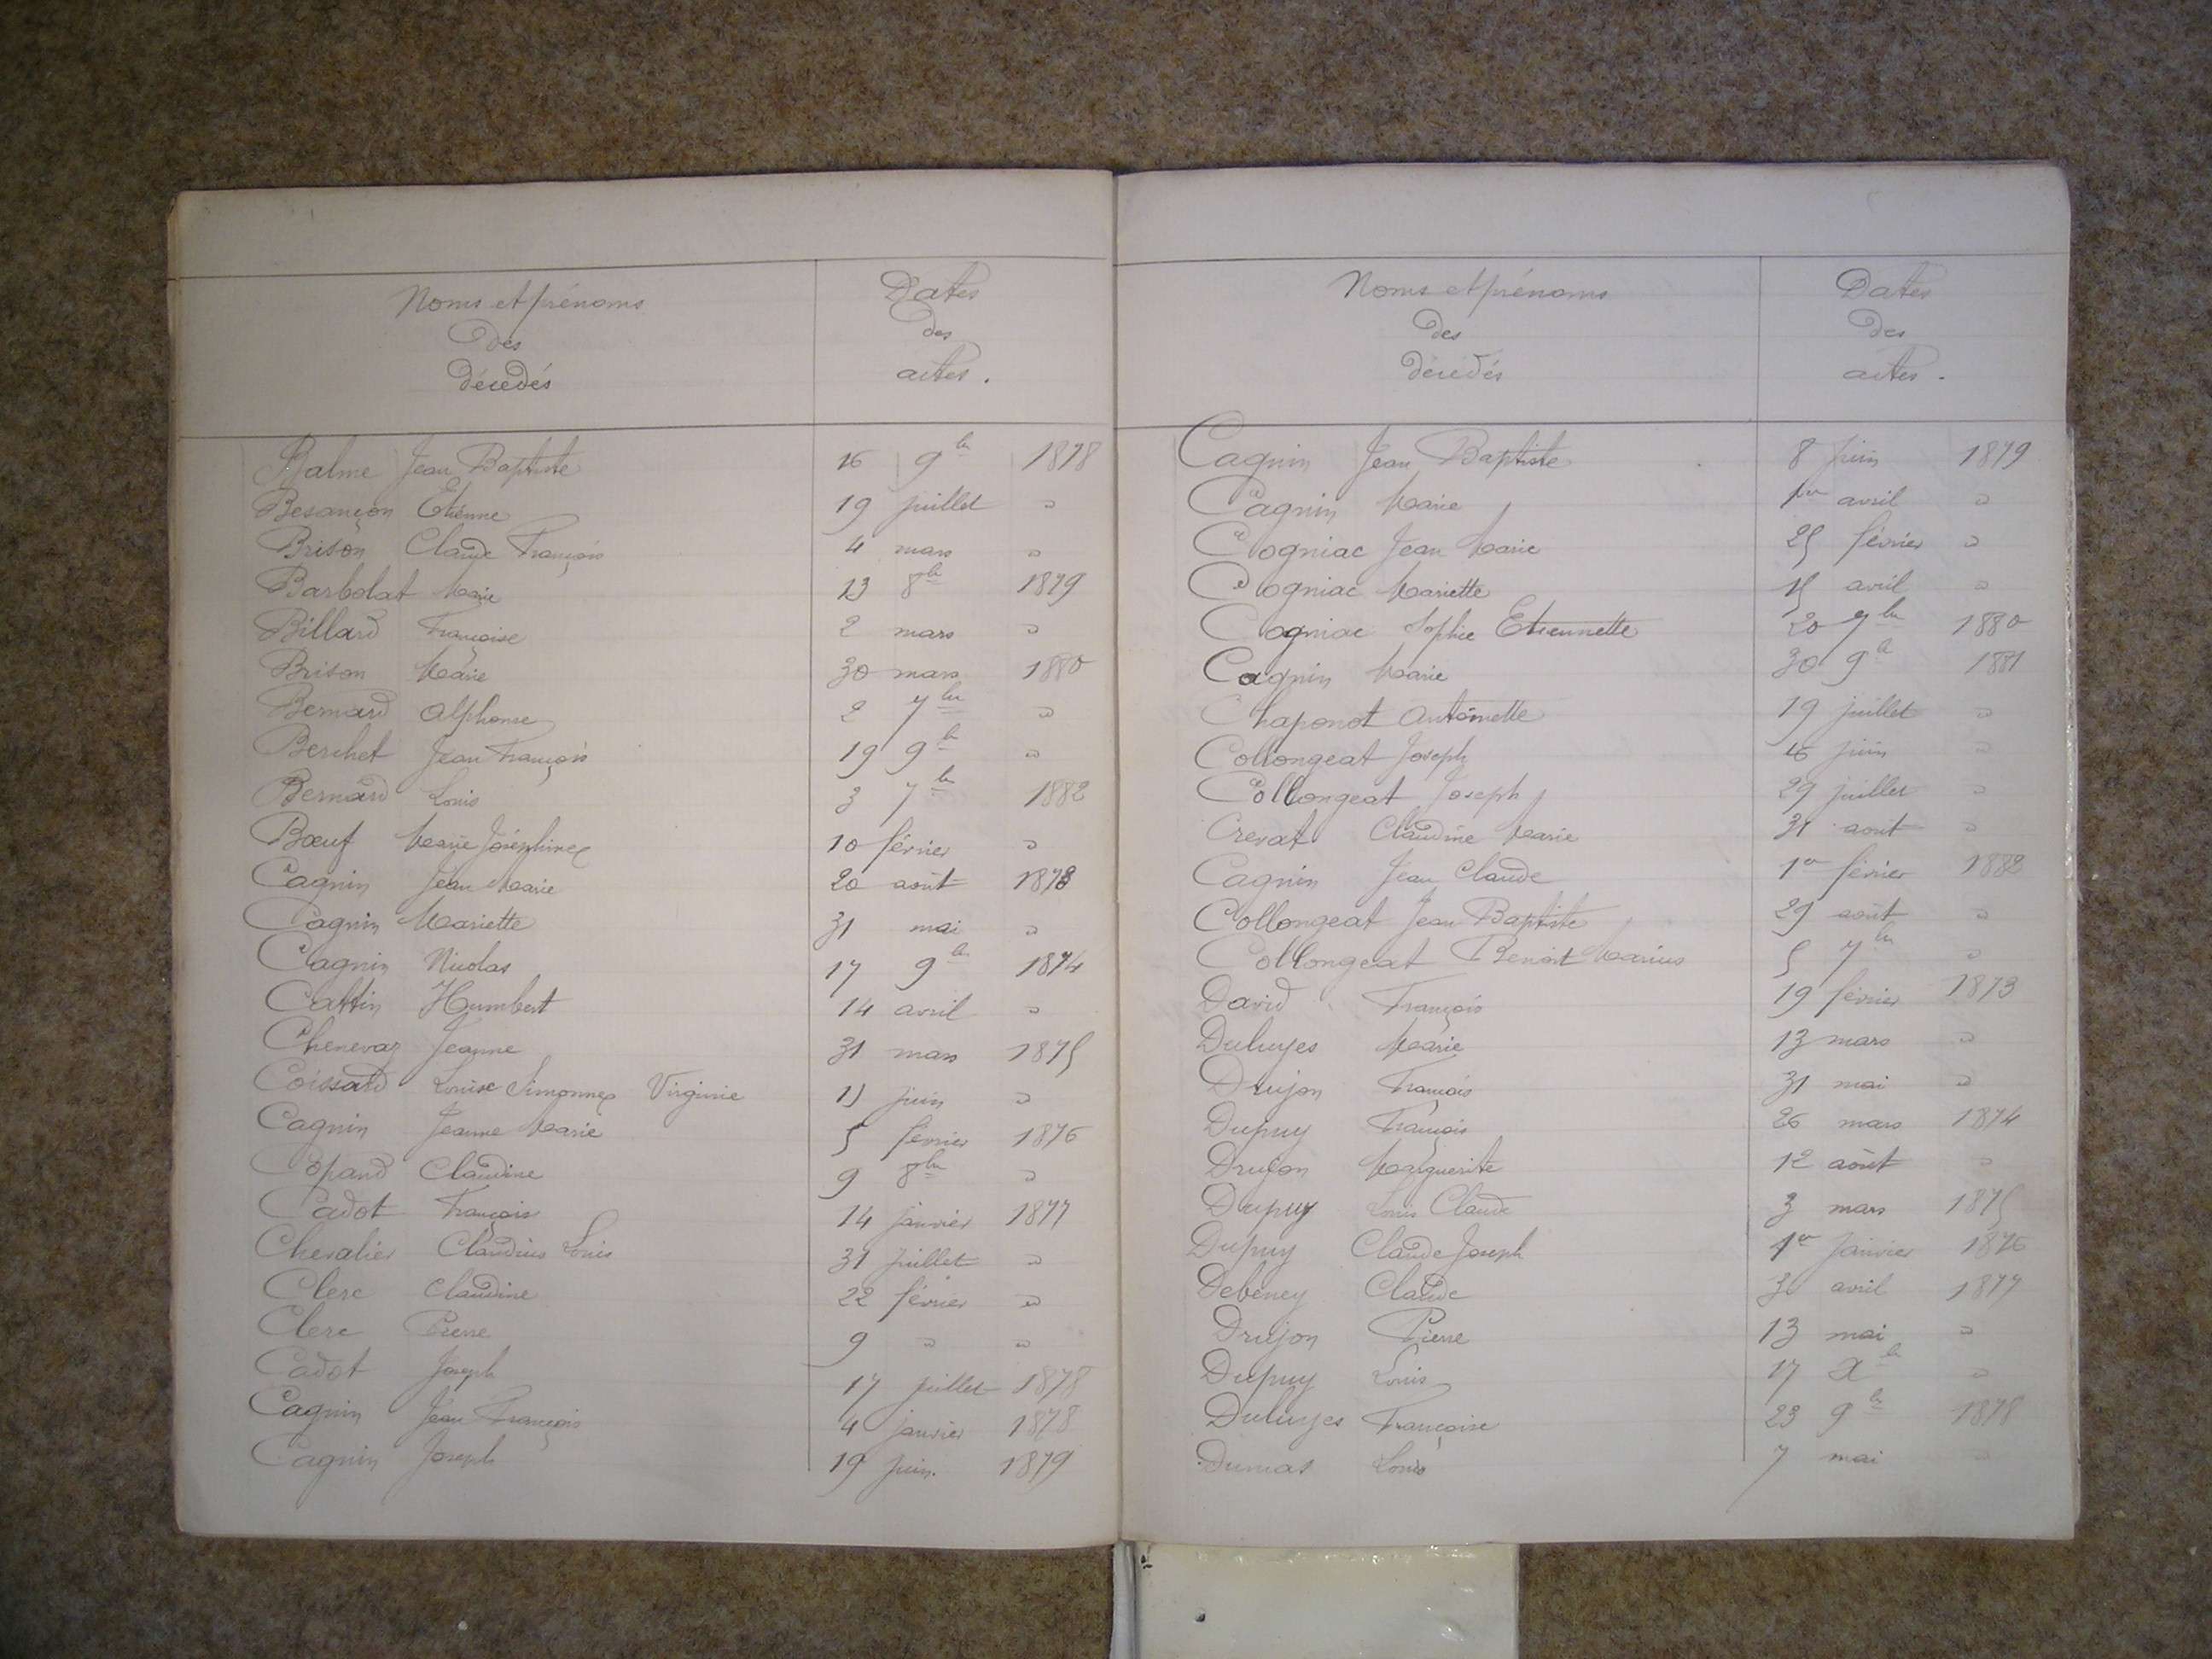 Noms et prénoms
des
décédés
Dates
des
actes.
Balme Jean Baptiste 16 9bre 1878
Besançon Etienne 19 juillet "
Brison Claude François 4 mars "
Barbolat Marie 23 8bre 1879
Billard Françoise 2 mars "
Brison Marie 30 mars 1880
Bernard Alphonse 2 7bre "
Berchet Jean François 19 9bre "
Bernard Louis 3 7bre 1882
Bœuf Marie Joséphine 10 février "
Cagnin Jean Marie 20 août 1873
Cagnin Mariette 31 mai "
Cagnin Nicolas 17 9bre 1874
Cattin Humbert 14 avril "
Chenevaz Jeanne 31 mars 1875
Coissard Louise Simonne Virginie 15 juin "
Cagnin Jeanne Marie 5 février 1876
Copard Claudine 9 8bre "
Cadot François 14 janvier 1877
Chevalier Claudius Louis 31 juillet "
Clerc Claudine 22 février "
Clerc Pierre 9 " "
Cadot Joseph 17 juillet 1878
Cagnin Jean François 4 janvier 1878
Cagnin Joseph 19 juin. 1879
Noms et prénoms
des
décédés
Dates
des
actes.
Cagnin Jean Baptiste 8 juin 1879
Cagnin Marie 1er avril "
Cogniac Jean Marie 25 février "
Cogniac Mariette 15 avril "
Cogniac Sophie Etiennette 20 7bre 1880
Cagnin Marie 30 9bre 1881
Chaponot Antoinette 19 juillet "
Collongeat Joseph 16 juin "
Collongeat Joseph 29 juillet "
Crevat Claudine Marie 31 août "
Cagnin Jean Claude 1er février 1882
Collongeat Jean Baptiste 29 août "
Collongeat Benoit Marius 5 7bre "
David François 19 février 1873
Duluyes Marie 13 mars "
Drujon François 31 mai "
Dupuy François 26 mars 1874
Drujon Marguerite 12 août "
Dupuy Louis Claude 3 mars 1875
Dupuy Claude Joseph 1er janvier 1876
Debeney Claude 30 avril 1877
Drujon Pierre 13 mai "
Dupuy Louis 17 Xbre "
Duluyes Françoise 23 9bre 1878
Dumas Louis 7 mai "